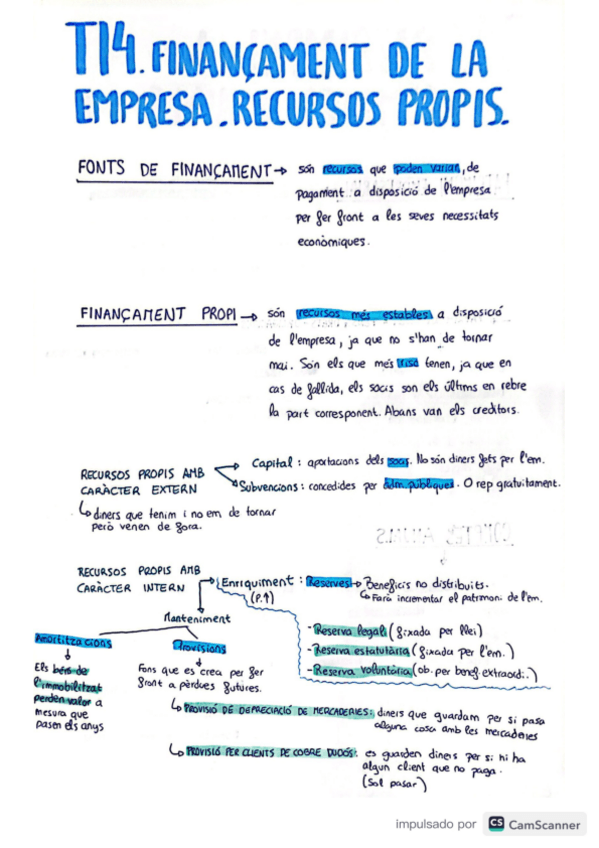 T14. FINANÇAMENT DE LA
EMPRESA. RECURSOS PROPIS.
FONTS DE FINANÇAMENT → són recursos que poden variar, de
pagament a disposició de l'empresa
per fer front a les seves necessitats
econòmiques.
FINANÇAMENT PROPI → són recursos més estables a disposició
de l'empresa, ja que no s'han de tornar
mai. Són els que més risc tenen, ja que en
cas de fallida, els socis son els últims en rebre
la part corresponent. Abans van els creditors.
RECURSOS PROPIS AMB
CARÀCTER EXTERN
Capital: aportacions dels socis. No són diners fets per l'em.
Subvencions: concedides per adm. públiques. O rep gratuïtament.
diners que tenim i no em de tornar
però venen de fora.
RECURSOS PROPIS AMB
CARÀCTER INTERN
Enriquiment: Reserves → Beneficis no distribuits.
(P.↑)
Farà incrementar el patrimoni de l'em.
Manteniment
- Reserva legal (fixada per llei)
- Reserva estatutària (fixada per l'em.)
- Reserva voluntària (ob. per benef extraordi.)
Amortitzacions
Els béns de
l'immobilitzat
perden valor a
mesura que
pasen els anys
Provisions
Fons que es crea per fer
front a pèrdues futures.
PROVISIÓ DE DEPRECIACIÓ DE MERCADERIES: diners que guardam per si pasa
alguna cosa amb les mercaderies
PROVISIÓ PER CLIENTS DE COBRE DUDÓS: es guarden diners per si hi ha
algun client que no paga.
(Sol pasar)
impulsado por CS CamScanner